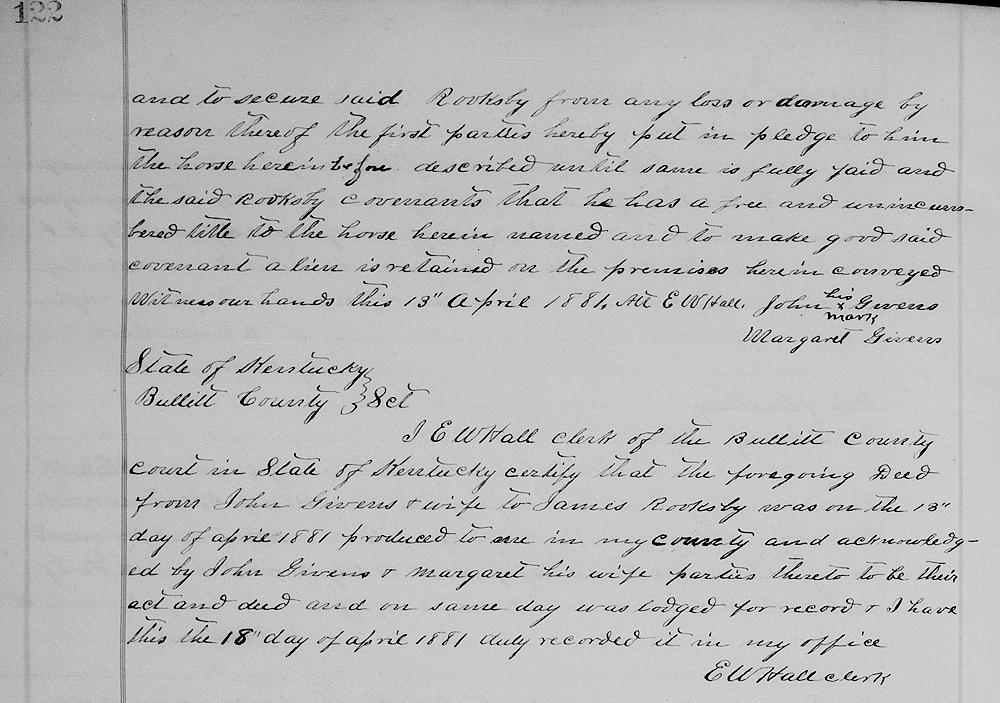 122
and to secure said Rooksby from any loss or damage by
reason thereof the first parties hereby put in pledge to him
the horse herein before described until same is fully paid and
the said Rooksby covenants that he has a free and unincum-
bered title to the horse herein named and to make good said
covenant a lien is retained on the premises herein conveyed
Witness our hands this 13" April 1881. Att E W Hall. John his x mark Givens
Margaret Givens
State of Kentucky
Bullitt County } Sct
I E W Hall clerk of the Bullitt County
court in State of Kentucky certify that the foregoing Deed
from John Givens & wife to James Rooksby was on the 13"
day of april 1881 produced to me in my county and acknowledg-
ed by John Givens & Margaret his wife parties thereto to be their
act and deed and on same day was lodged for record & I have
this the 18" day of april 1881 duly recorded it in my office
E W Hall clerk